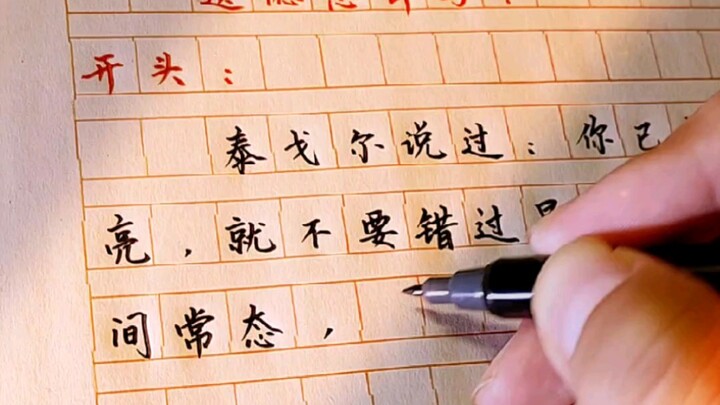 开头：
泰戈尔说过：你已
亮，就不要错过
间常态，